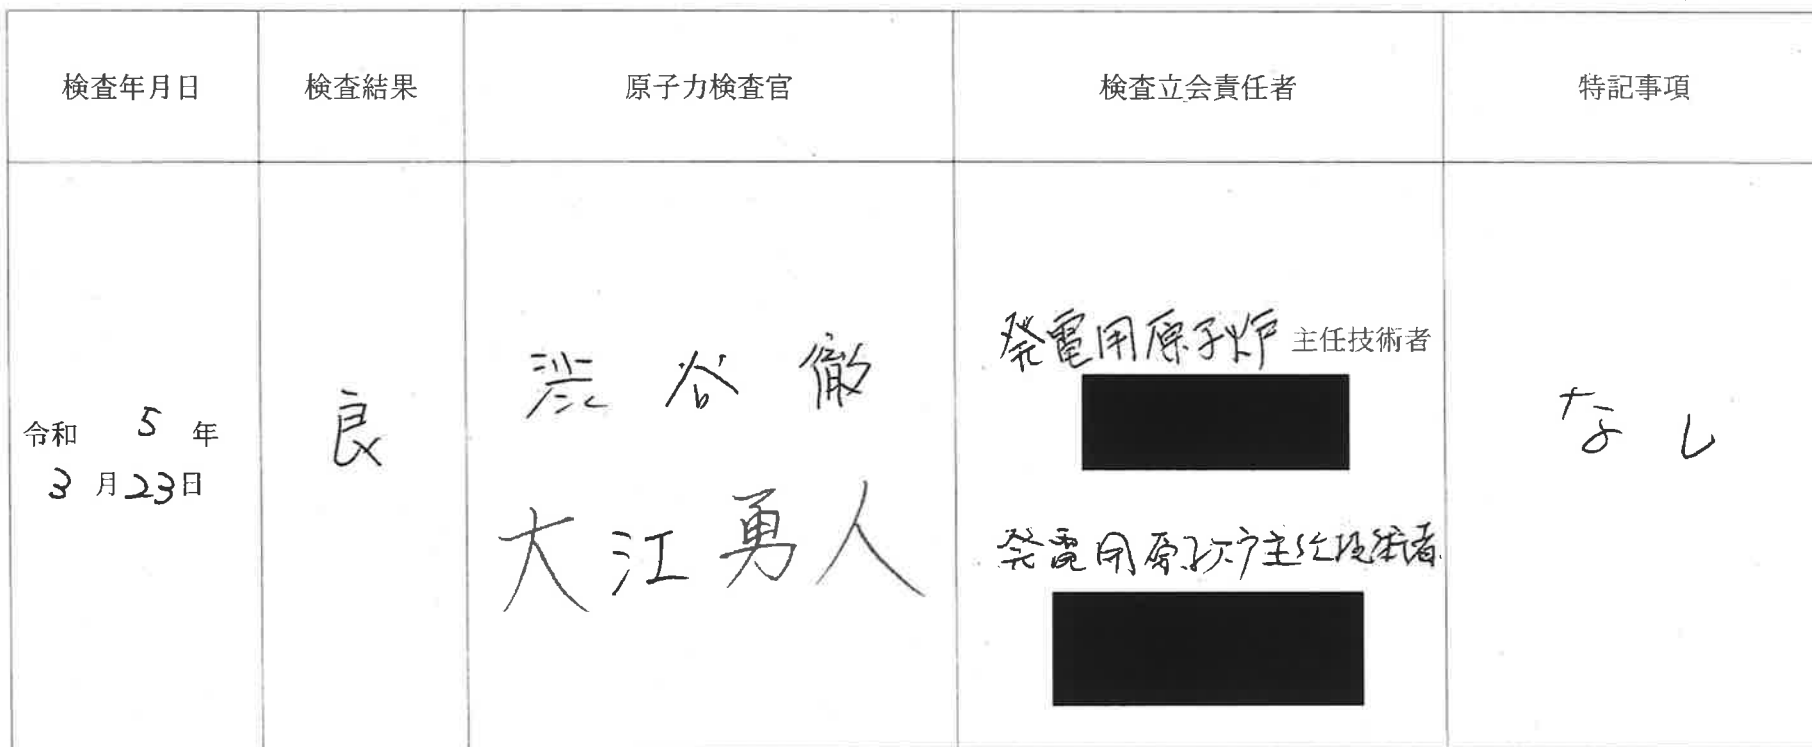 検査年月日 検査結果 原子力検査官 検査立会責任者 特記事項
令和 5 年
3 月 23 日
良
渋谷 徹
大江勇人
発電用原子炉 主任技術者
発電用原子炉主任技術者
なし